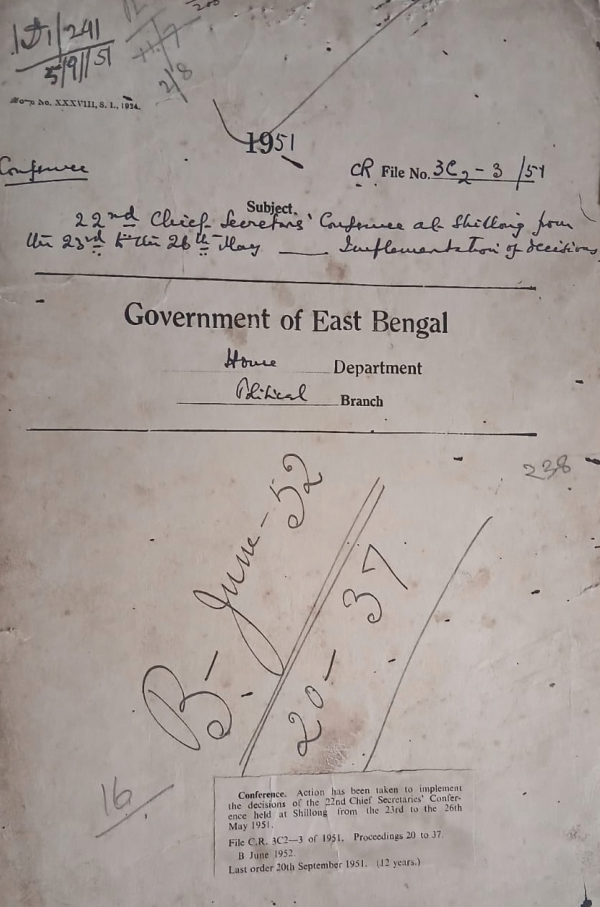 5/9/51
2/8
Form No. XXXVIII, S. I., 1924.
1951
Conference
CR File No. 3C2-3/51
Subject.
22nd Chief Secretaries' Conference at Shillong from
the 23rd to the 26th May — Implementation of decisions
Government of East Bengal
Home Department
Political Branch
238
B- June-52
20-37
16
Conference. Action has been taken to implement
the decisions of the 22nd Chief Secretaries' Confer-
ence held at Shillong from the 23rd to the 26th
May 1951.
File C.R. 3C2—3 of 1951. Proceedings 20 to 37.
B June 1952.
Last order 20th September 1951. (12 years.)